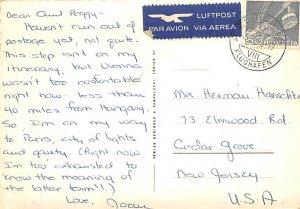 Dear Aunt Peggy-
Haven't run out of
postage yet, not quite.
This stop isn't on my
itinerary, but Vienna
wasn't too comfortable
right now, less than
40 miles from Hungary.
So I'm on my way
to Paris, city of lights
and gaiety. (Right now
I'm too exhausted to
know the meaning of
the latter term!!)
Love, Joan
LUFTPOST
PAR AVION VIA AEREA
VIII
FLUGHAFEN
Mrs. Herman
73 Elmwood Rd.
Cedar Grove
New Jersey
U.S.A.